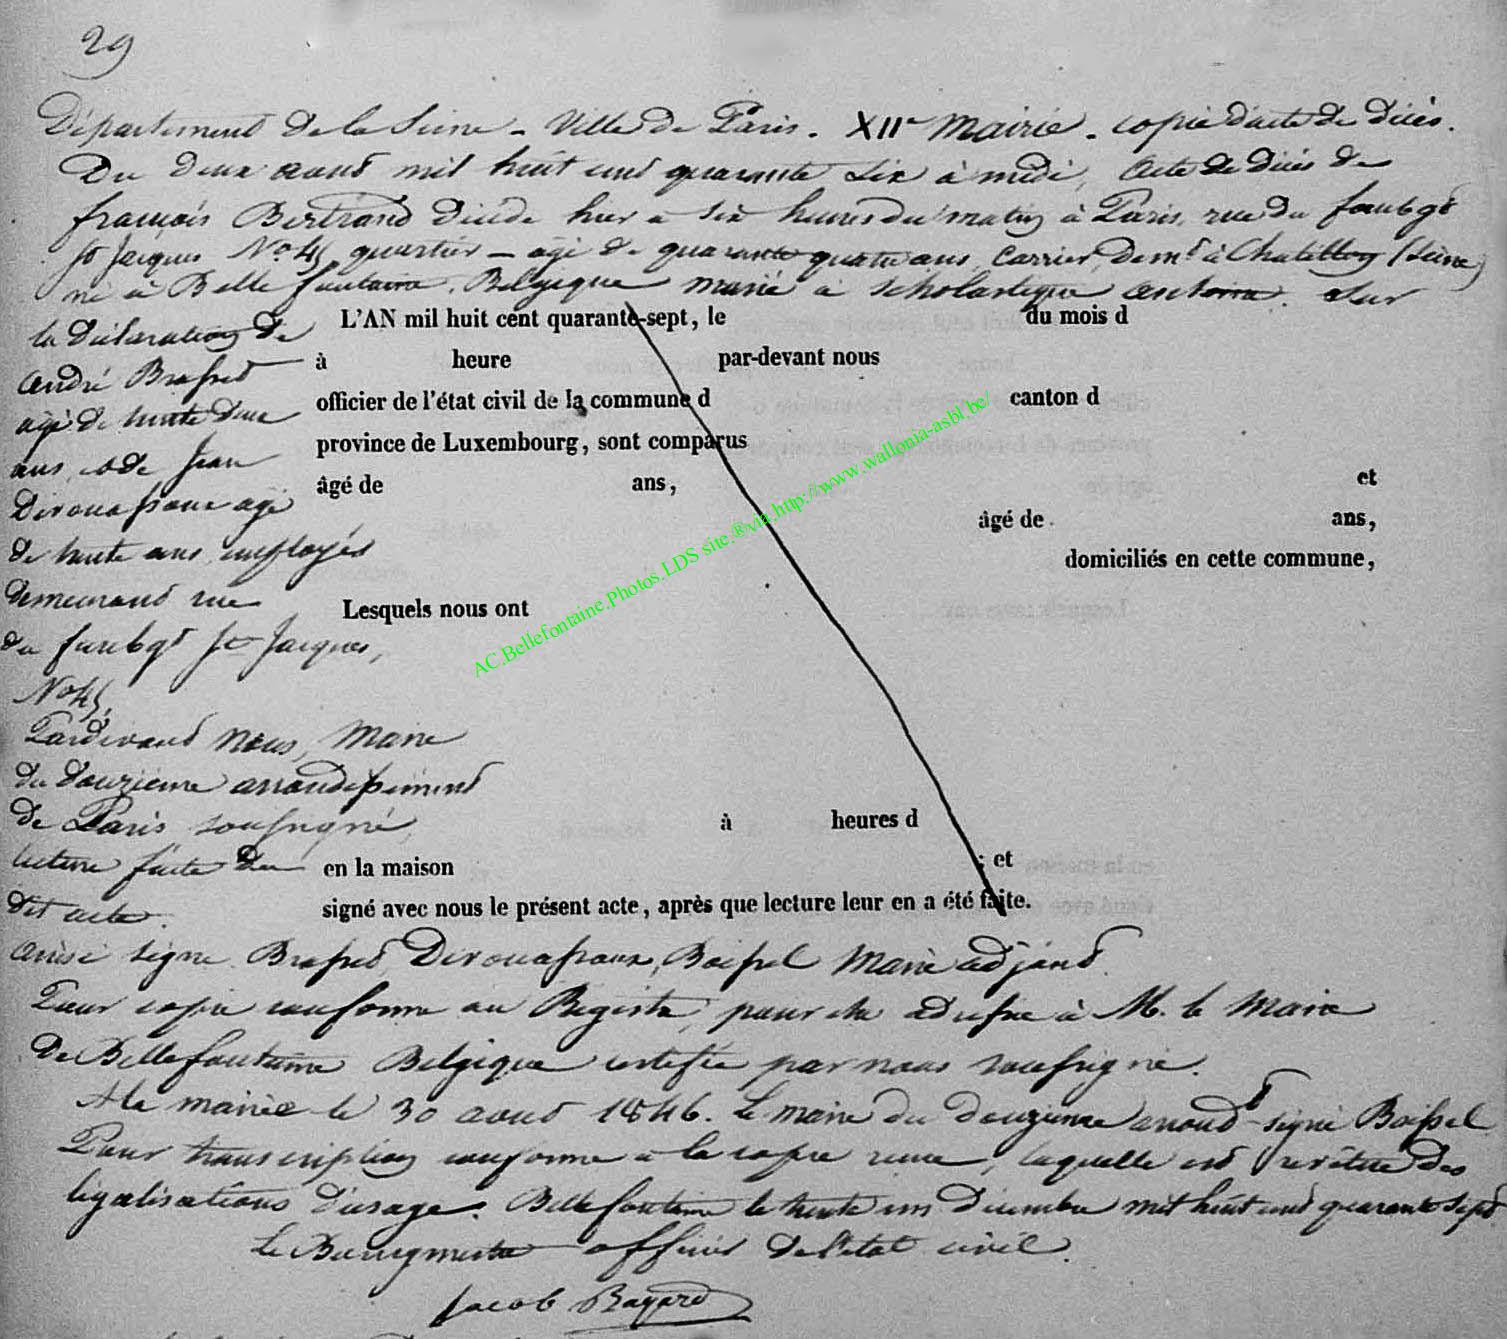 29
Département de la Seine - Ville de Paris. XIIe Mairie. copie d'acte de décès.
Du deux aout mil huit cent quarante six à midi, Acte de décès de
françois Bertrand décédé hier a six heures du matin à Paris, rue du faubgt
St Jacques No 45 quartier — agé de quarante quatre ans, Carrier, demt à Chatillon (Seine)
né à Bellefontaine, Belgique marié à Scholastique Antoine. Sur
la déclaration de
L'AN mil huit cent quarante-sept, le du mois d
André Brasset
à heure par-devant nous
agé de trente deux
officier de l'état civil de la commune d canton d
ans, et de Jean
province de Luxembourg, sont comparus
agé
âgé de ans, et
âgé de ans,
de trente ans, employés
domiciliés en cette commune,
demeurant rue
Lesquels nous ont
du faubgt St Jacques,
No 45,
Pardevant Nous, Maire
du douzième arrondissement
de Paris soussigné,
à heures d
lecture faite du
en la maison ; et
dit acte.
signé avec nous le présent acte, après que lecture leur en a été faite.
ainsi signé Brasset, Boissel Maire adjoint
Pour copie conforme au Registre, pour etre adressée à M. le Maire
de Bellefontaine Belgique certifiée par nous soussigné.
A la mairie le 30 aout 1846. Le maire du douzieme arrondt signé Boissel
Pour transcription conforme à la copie reçue, laquelle est revêtue des
légalisations d'usage. Bellefontaine le trente un Décembre mil huit cent quarante sept
Le Bourgmestre officier de l'état civil.
Jacob Bayard
AC.Bellefontaine.Photos.LDS site.®via.http://www.wallonia-asbl.be/